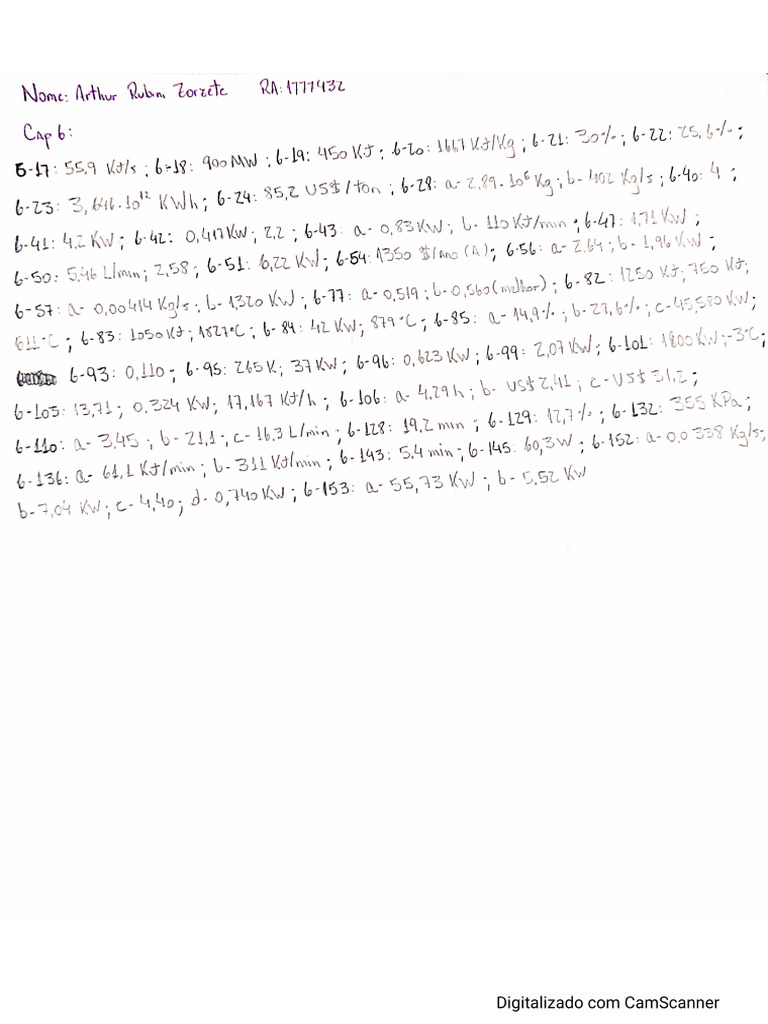 Nome: Arthur Rubim Zorzete RA: 1777432
Cap 6:
6-17: 55,9 KJ/s; 6-18: 900 MW; 6-19: 450 KJ; 6-20: 1667 KJ/Kg; 6-21: 30%; 6-22: 25,6%;
6-23: 3,646.10¹² KWh; 6-24: 85,2 US$/ton; 6-28: a- 2,89.10⁶ Kg; b- 402 Kg/s; 6-40: 4;
6-41: 4,2 KW; 6-42: 0,417 KW; 2,2; 6-43: a- 0,83 KW; b- 110 KJ/min; 6-47: 1,71 KW;
6-50: 5,46 L/min; 2,58; 6-51: 6,22 KW; 6-54: 1350 $/ano (A); 6-56: a- 2,64; b- 1,96 KW;
6-57: a- 0,00414 Kg/s; b- 1,320 KW; 6-77: a- 0,519; b- 0,560 (melhor); 6-82: 1250 KJ; 750 KJ;
611°C; 6-83: 1050 KJ; 1827°C; 6-84: 42 KW; 879°C; 6-85: a- 14,9%; b- 27,6%; c- 45,580 KW;
6-93: 0,110; 6-95: 265 K; 37 KW; 6-96: 0,623 KW; 6-99: 2,07 KW; 6-101: 1800 KW; -3°C;
6-103: 13,71; 0,324 KW; 17,167 KJ/h; 6-106: a- 4,29 h; b- US$ 2,41; c- US$ 31,2;
6-110: a- 3,45; b- 21,1; c- 16,3 L/min; 6-128: 19,2 min; 6-129: 12,7%; 6-132: 355 KPa;
6-136: a- 61,1 KJ/min; b- 311 KJ/min; 6-143: 5,4 min; 6-145: 60,3 W; 6-152: a- 0,0338 Kg/s;
b- 7,04 KW; c- 4,40; d- 0,740 KW; 6-153: a- 55,73 KW; b- 5,52 KW
Digitalizado com CamScanner